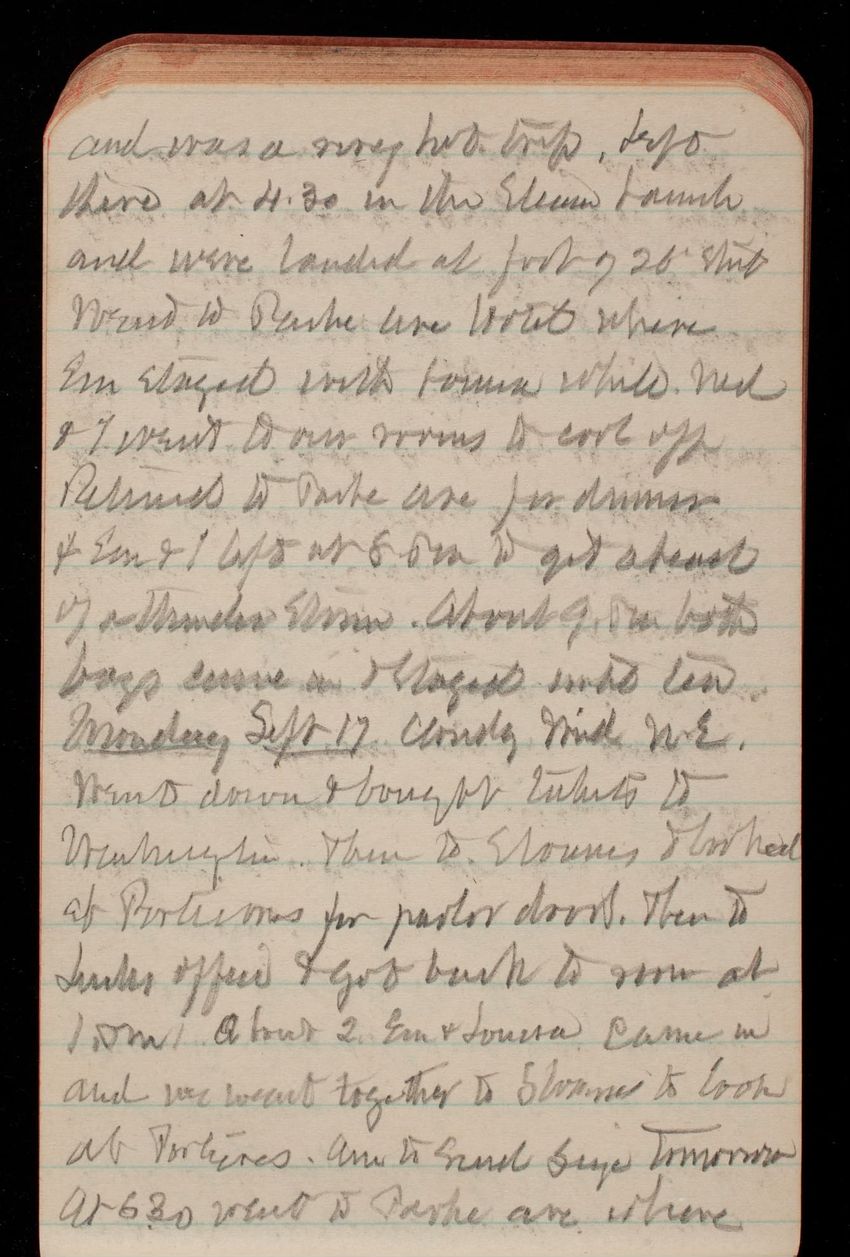 and was a very hot trip, Left
there at 4.30 in the Steam Launch
and were landed at foot of 26 Street
Went to Parke ave Hotel where
Em stayed with Louisa while Ned
& I went to our rooms to cool off
Returned to Parke ave for dinner
& Em & I left at 8 Pm to get ahead
of a thunder Storm. About 9. Pm both
boys came in & stayed until ten
Monday Sept 17 Cloudy Wind N.E.
Went down & bought tickets to
Washington. Then to Sloanes & looked
at Portieres for parlor doors. Then to
office & got back to room at
1 Pm. About 2. Em & Louisa came in
and we went together to Sloanes to look
at Portieres. Are to send tomorrow
At 630 went to Parke ave where